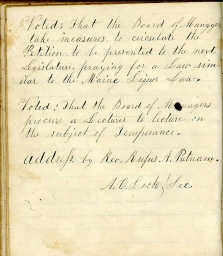 Voted; That the Board of Managers
take measures, to circulate the
Petition to be presented to the next
Legislature, praying for a Law sim-
ilar to the Maine Liquor Law.
Voted; That the Board of Managers
procure a Lecturer to lecture on
the subject of Temperance.
Address by Rev. Rufus A. Putnam.
A. C. Locke, Sec.